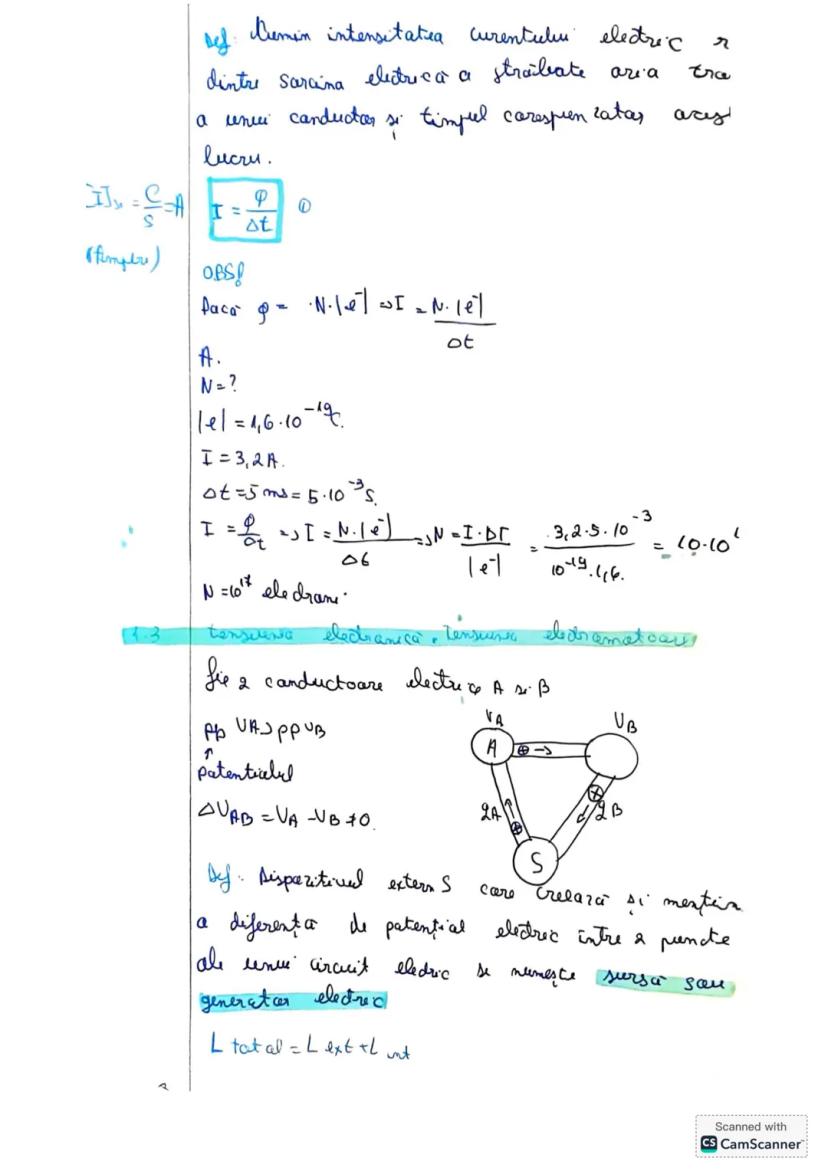 Def. Numim intensitatea curentului electric r
dintre sarcina electrică a străbate aria tra
a unui conductor și timpul corespunzator aces
lucru.
[I]SI = C/S = A
(Ampere)
I = φ/Δt ①
OBS!
Dacă φ = ·N·|e⁻| => I = N·|e⁻|/Δt
A.
N=?
|e| = 1,6·10⁻¹⁹C.
I = 3,2A.
Δt = 5 ms = 5·10⁻³S.
I = φ/Δt => I = N·|e⁻|/Δt => N = I·Δt/|e⁻| = 3,2·5·10⁻³/10⁻¹⁹·1,6. = 10·10¹
N = 10¹⁷ electroni.
1.3 tensiunea electronică, Tensiunea electromotoare
fie 2 conductoare electrice A si B
pp VA>ppVB
↑
potentialul
ΔVAB = VA - VB ≠ 0
VA
VB
A
⊕→
2A
⊕
⊕
2B
S
Def. Dispozitivul extern S care creează și mențin
a diferența de potențial electric între 2 puncte
ale unui circuit electric se numește sursă sau
generator electric
L total = L ext + L int
Scanned with
CS CamScanner